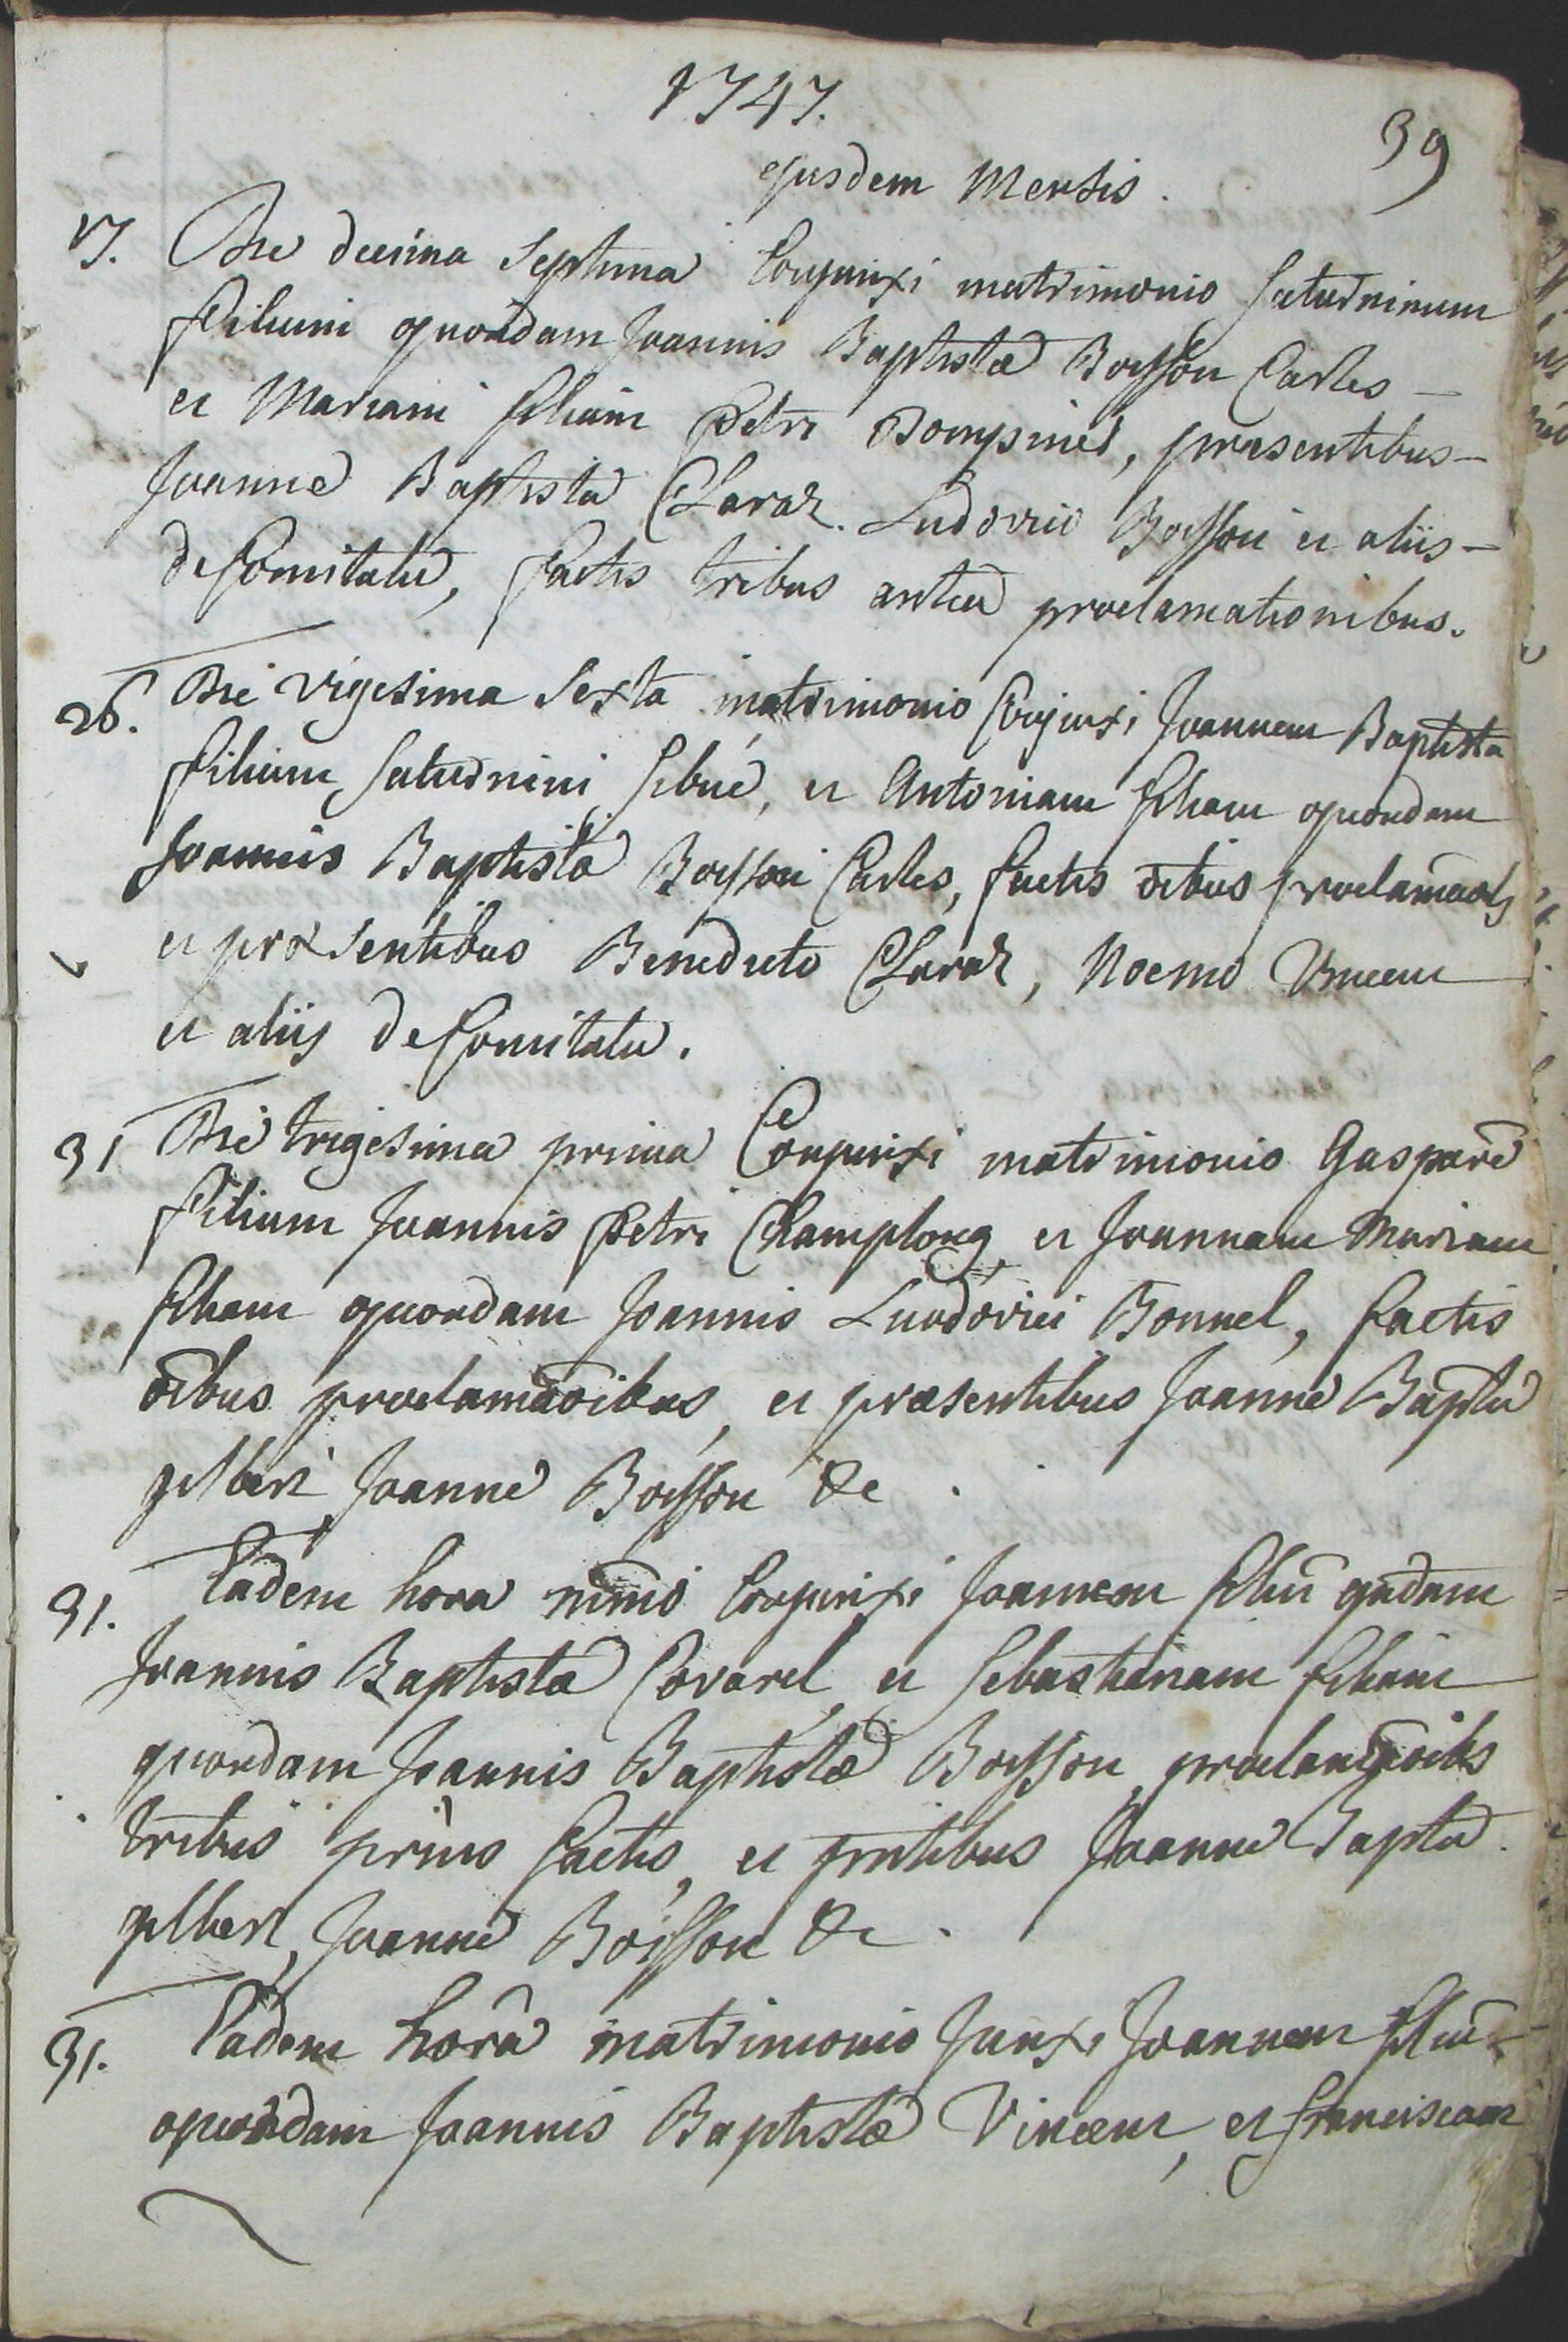 1747.
39
ejusdem Mensis.
17. Die decima Septima Conjunxi matrimonio Saturninum
filium quondam Joannis Baptistæ Boysson Carles —
et Mariam filiam Petri Dompmet, præsentibus —
Joanne Baptista Claraz. Ludovico Boysson et aliis —
de Comitatu, factis tribus antea proclamationibus.
26. Die vigesima Sexta matrimonio Conjunxi Joannem Baptista
filium Saturnini Sibué, et Antoniam filiam quondam
Joannis Baptistæ Boysson Carles, factis oibus proclamaoibs
et præsentibus Benedicto Claraz, Noemo Vincen
et aliis de Comitatu.
31 Die trigesima prima Conjunxi matrimonio Gasparē
filium Joannis Petri Champlong, et Joannam Mariam
filiam quondam Joannis Ludovici Bonnel, factis
oībus proclamāoibus, et præsentibus Joanne Bapta
gilbert Joanne Boysson &c.
31. Eadem hora mrnio Conjunxi Joannem filiū qndam
Joannis Baptistæ Covarel et Sebastianam filiam
quondam Joannis Baptistæ Boysson proclamāoibs
tribus prius factis, et pntibus Joanne Bapta
gilbert, Joanne Boisson &c.
31. Eadem horâ matrimonio Junxi Joannem filiū
quondam Joannis Baptistæ Vincen, et franciscam